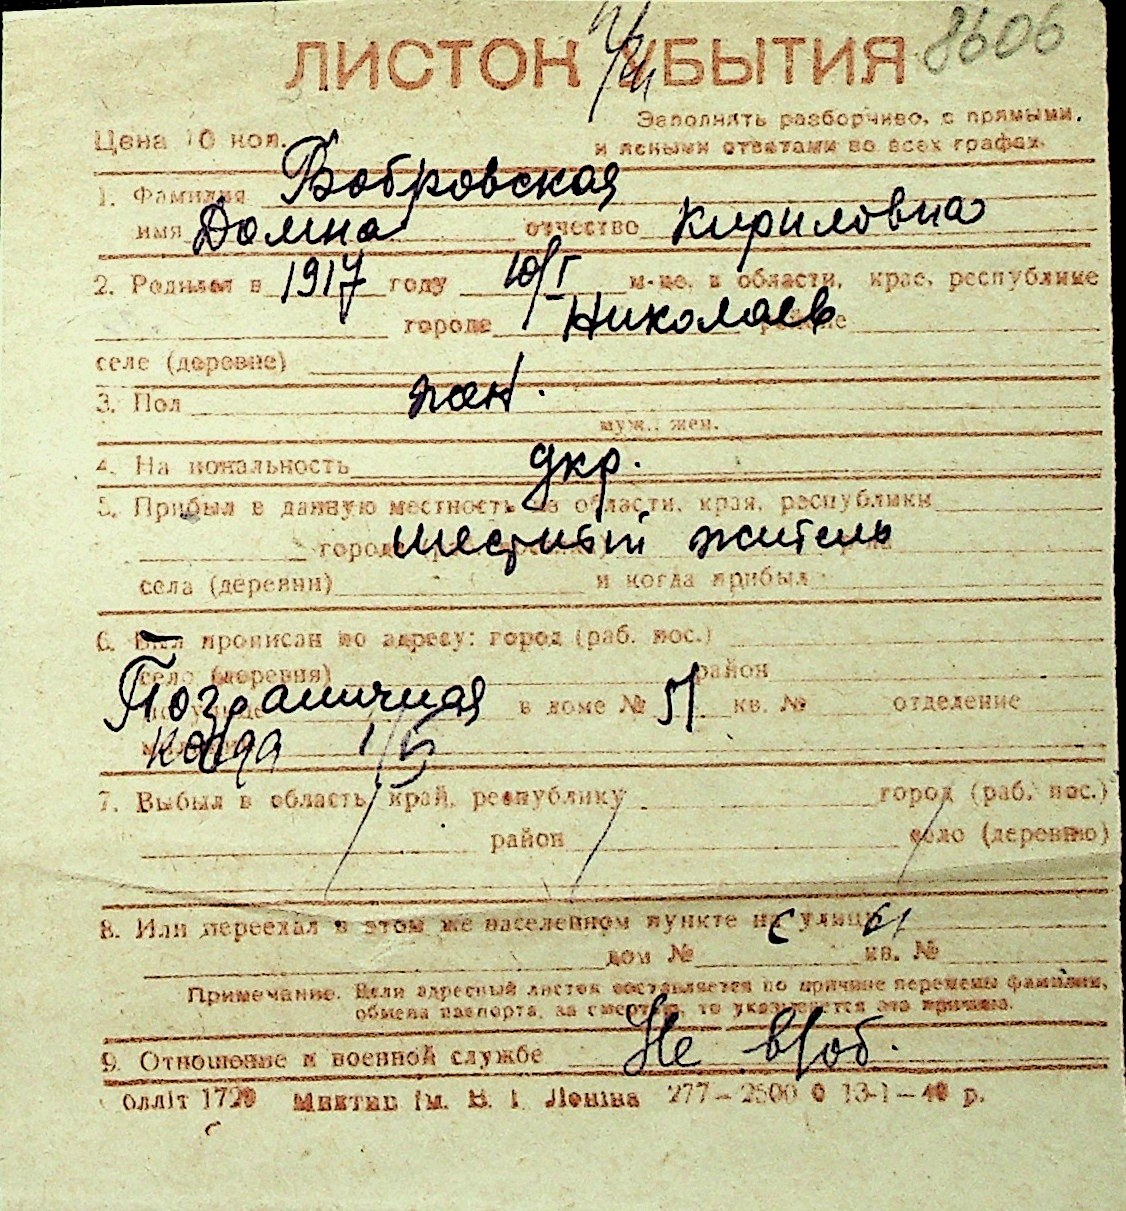 8606
ЛИСТОК УБЫТИЯ
Цена 10 коп.
Заполнять разборчиво, с прямыми,
и ясными ответами во всех графах.
1. Фамилия Бобровская
имя Домна отчество Кириловна
2. Родился в 1917 году 10/I м-це, в области, крае, республике
городе Николаев районе
селе (деревне)
3. Пол жен.
муж., жен.
4. Национальность укр.
5. Прибыл в данную местность из области, края, республики
города местный житель
села (деревни) и когда прибыл
6. Был прописан по адресу: город (раб. пос.)
село (деревня) район
Пограничная в доме № 51 кв. № отделение
когда 1/5
7. Выбыл в область, край, республику город (раб. пос.)
район село (деревню)
8. Или переехал в этом же населенном пункте на улицу
дом № кв. №
Примечание. Если адресный листок составляется по причине перемены фамилии,
обмена паспорта, за смертью, то указывается эта причина.
9. Отношение к военной службе Не в/об.
олліт 1729 Миктип ім. В. І. Леніна 277—2500 0 13-1—40 р.